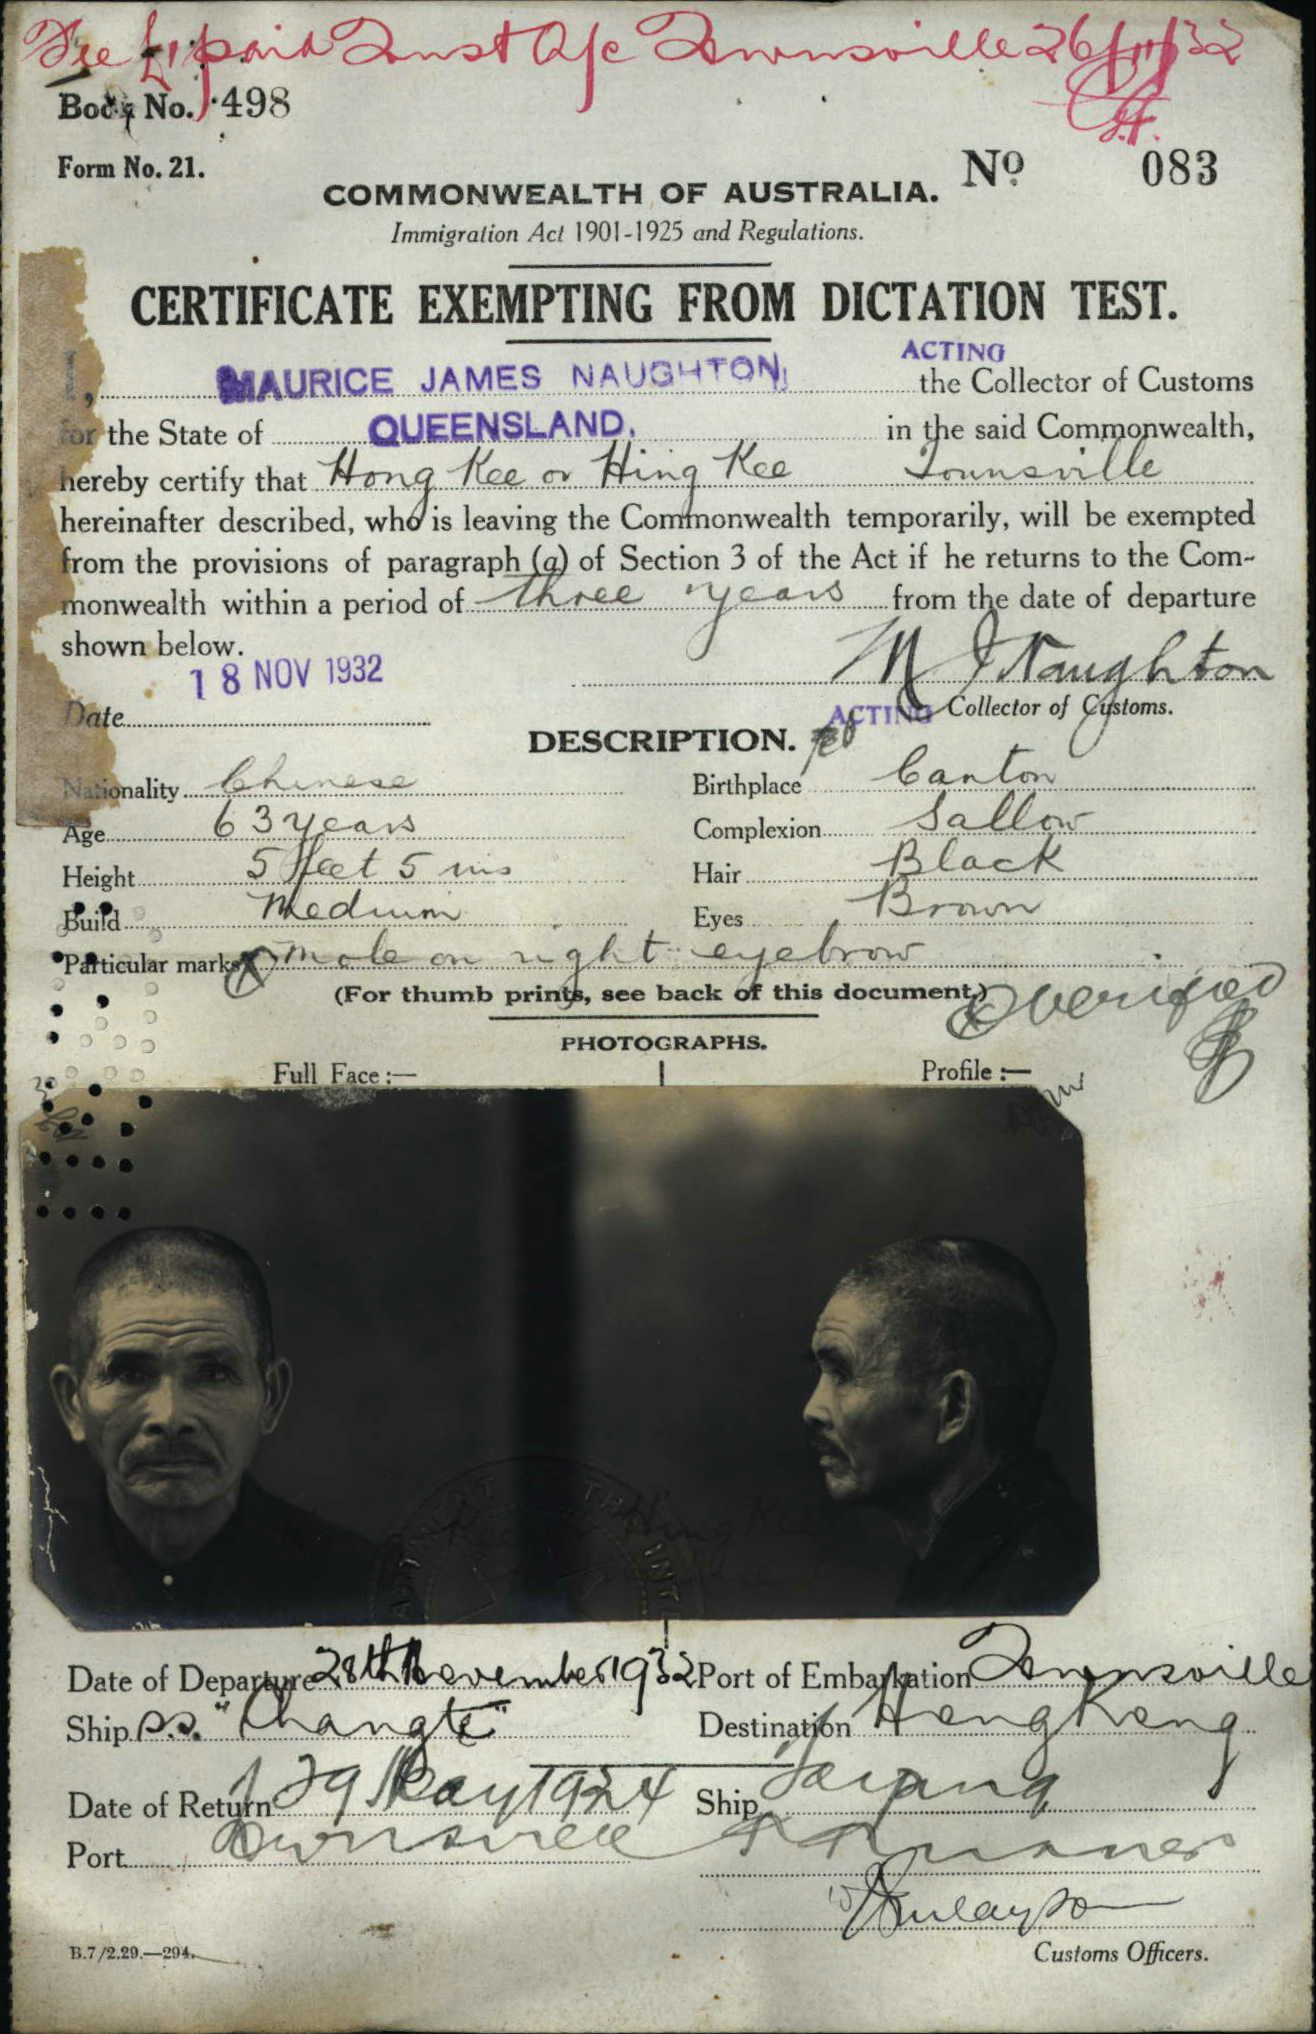 Fee £1 paid Trust A/c Townsville 26/11/32
Book No. 498
Form No. 21.
No 083
COMMONWEALTH OF AUSTRALIA.
Immigration Act 1901-1925 and Regulations.
CERTIFICATE EXEMPTING FROM DICTATION TEST.
ACTING
I, MAURICE JAMES NAUGHTON, the Collector of Customs
for the State of QUEENSLAND, in the said Commonwealth,
hereby certify that Hong Kee or Hing Kee Townsville
hereinafter described, who is leaving the Commonwealth temporarily, will be exempted
from the provisions of paragraph (a) of Section 3 of the Act if he returns to the Com-
monwealth within a period of three years from the date of departure
shown below.
18 NOV 1932
M J Naughton
Date
ACTING Collector of Customs.
DESCRIPTION.
Nationality Chinese Birthplace Canton
Age 63 years Complexion Sallow
Height 5 feet 5 ins Hair Black
Build Medium Eyes Brown
Particular marks X mole on right eyebrow
(For thumb prints, see back of this document.)
X Verified
PHOTOGRAPHS.
Full Face :— Profile :—
Date of Departure 28th November 1932 Port of Embarkation Townsville
Ship s.s. "Changte" Destination Hong Kong
Date of Return 29 May 1934 Ship Taiping
Port Townsville
Customs Officers.
B.7/2.29.—294.